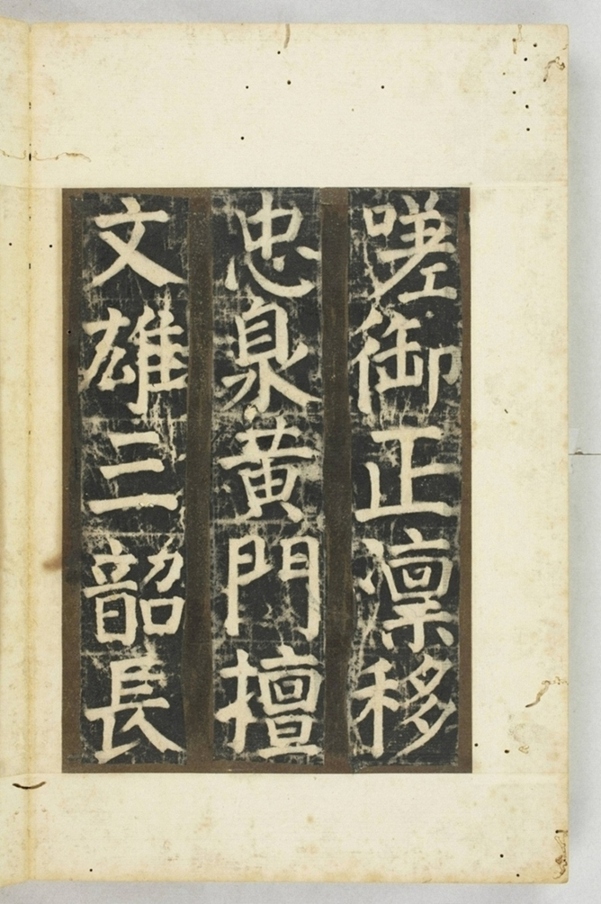 嗟御正凛移
忠泉黄門擅
文雄三韶長